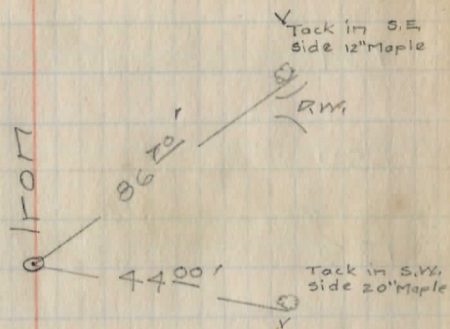 Tack in S.E.
Side 12" Maple
D.W.
86 70'
Iron
44 00'
Tack in S.W.
Side 20" Maple